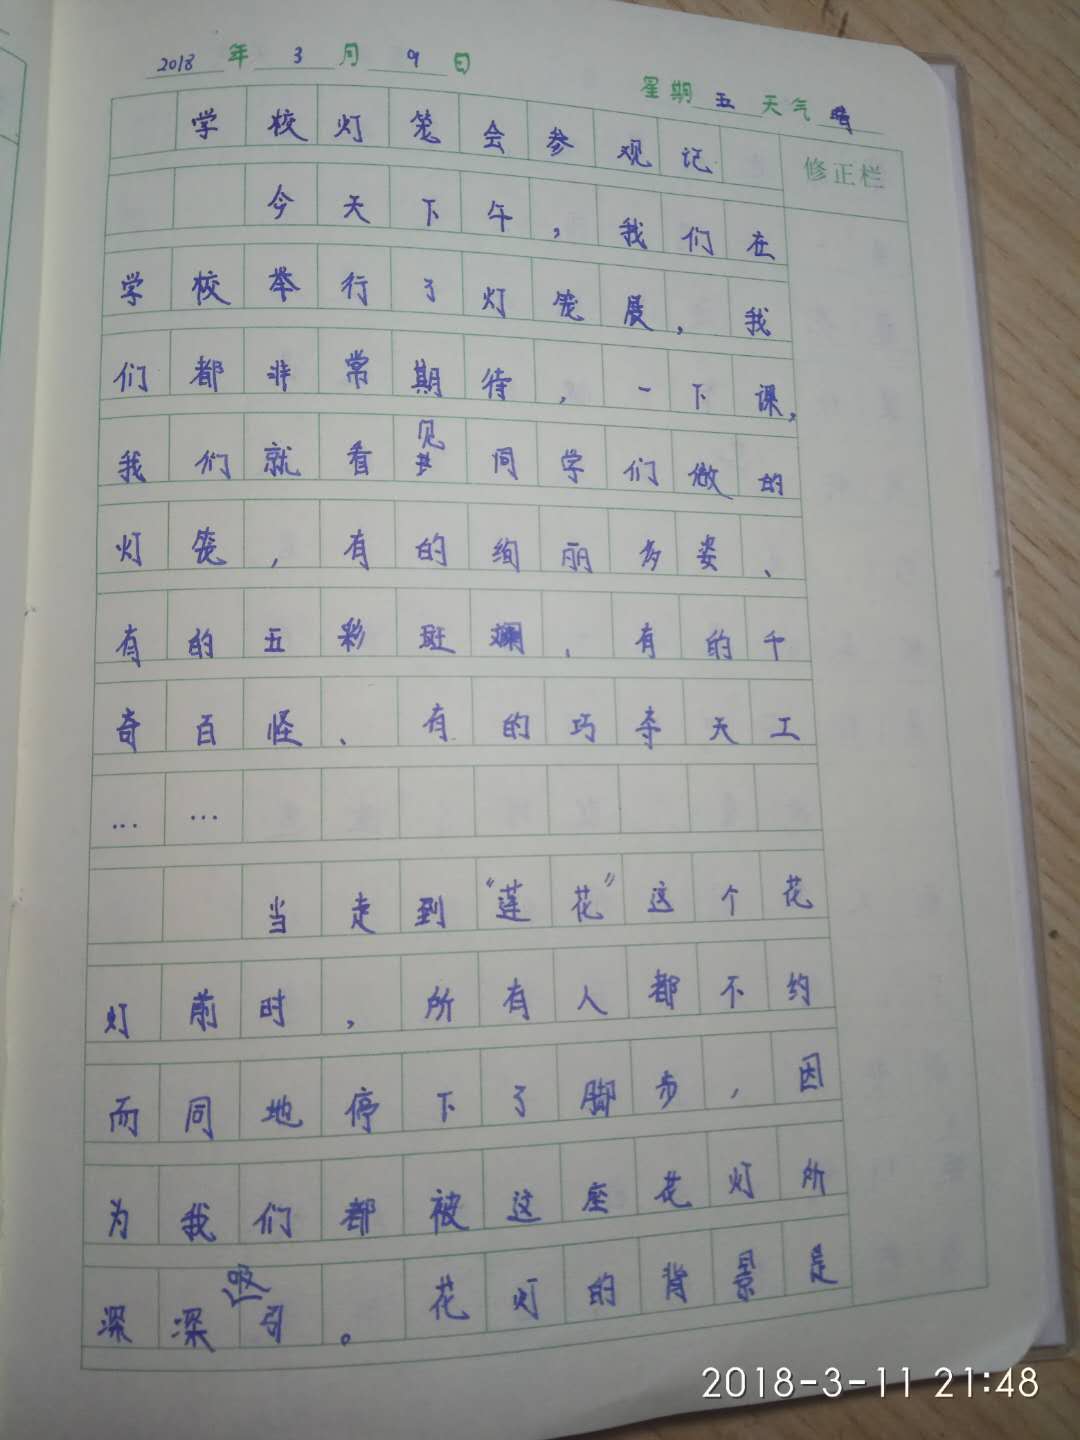 2018年3月9日
星期五天气晴
学校灯笼会参观记
修正栏
今天下午,我们在
学校举行了灯笼展,我
们都非常期待,一下课,
我们就看见同学们做的
灯笼,有的绚丽多姿、
有的五彩斑斓、有的千
奇百怪、有的巧夺天工
……
当走到“莲花”这个花
灯前时,所有人都不约
而同地停下了脚步,因
为我们都被这座花灯所
深深吸引。花灯的背景是
2018-3-11 21:48